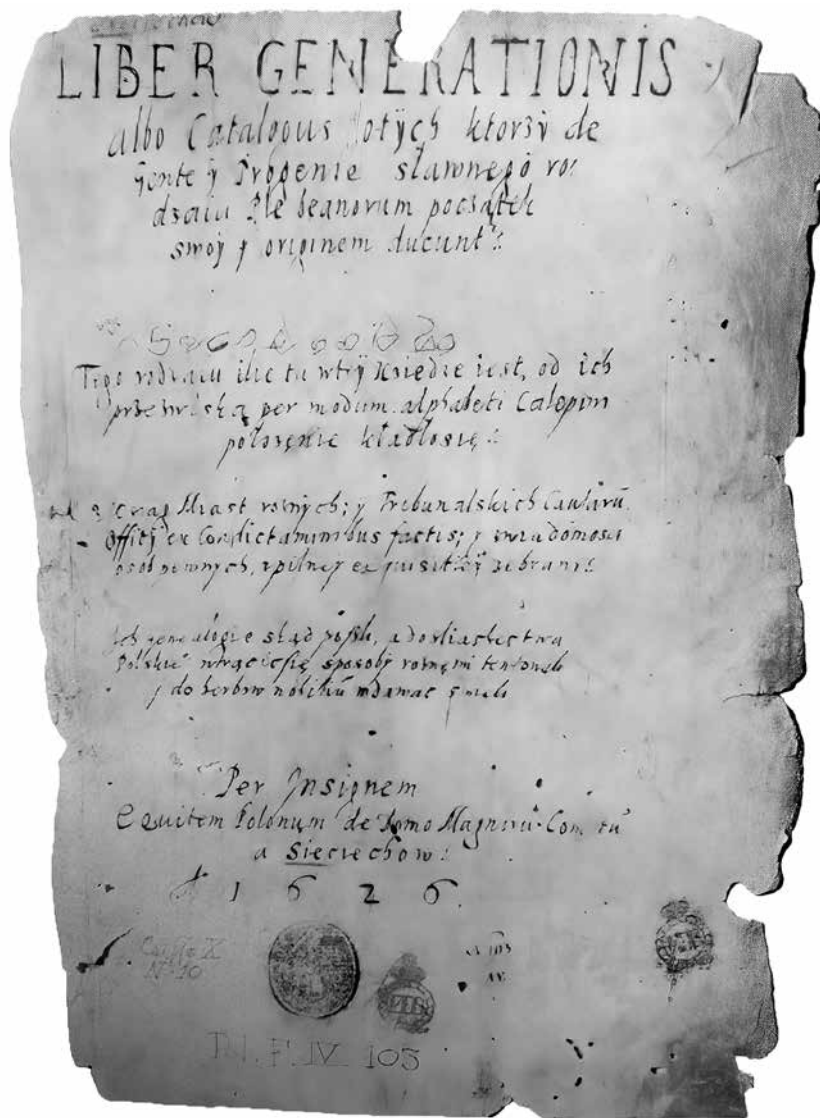 LIBER GENERATIONIS
albo Catalogus tych ktorzy de
Gente y Progenie sławnego ro:
dzaiu Plebeanorum początek
swoy y originem ducunt:
Tego rodzaiu ile tu wtey Xiędze iest, od ich
przezwiska per modum alphabeti Calepin
położenie kładłosię:
z xiag Miast roznych; y Tribunalskich Causarū
Offitÿ ex Condictaminibus factis; y wiadomosci
osob pewnych, zpilney exquisitiey zebrani:
Ich genealogie skąd poszli, a do sliachectwa
Polskie wtrącicsię sposoby roznemi tentowali
y do herbow nobiliū wdawac smieli
Per Insignem
Equitem Polonum de Domo Magnirū Com tū
a Sieciechow:
A 1 6 2 6.
Cassa X
No 10
N 103
IN. F. IV. 105